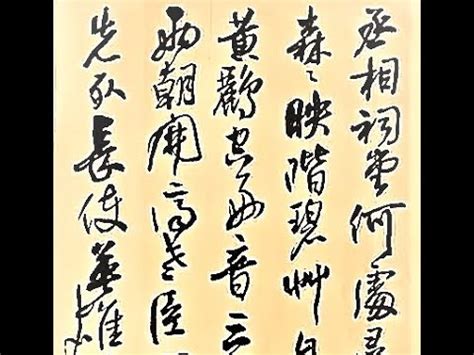 丞相祠堂何處尋
森〻映階碧艸自
黃鸝空好音三
兩朝開濟老臣
先死長使英雄